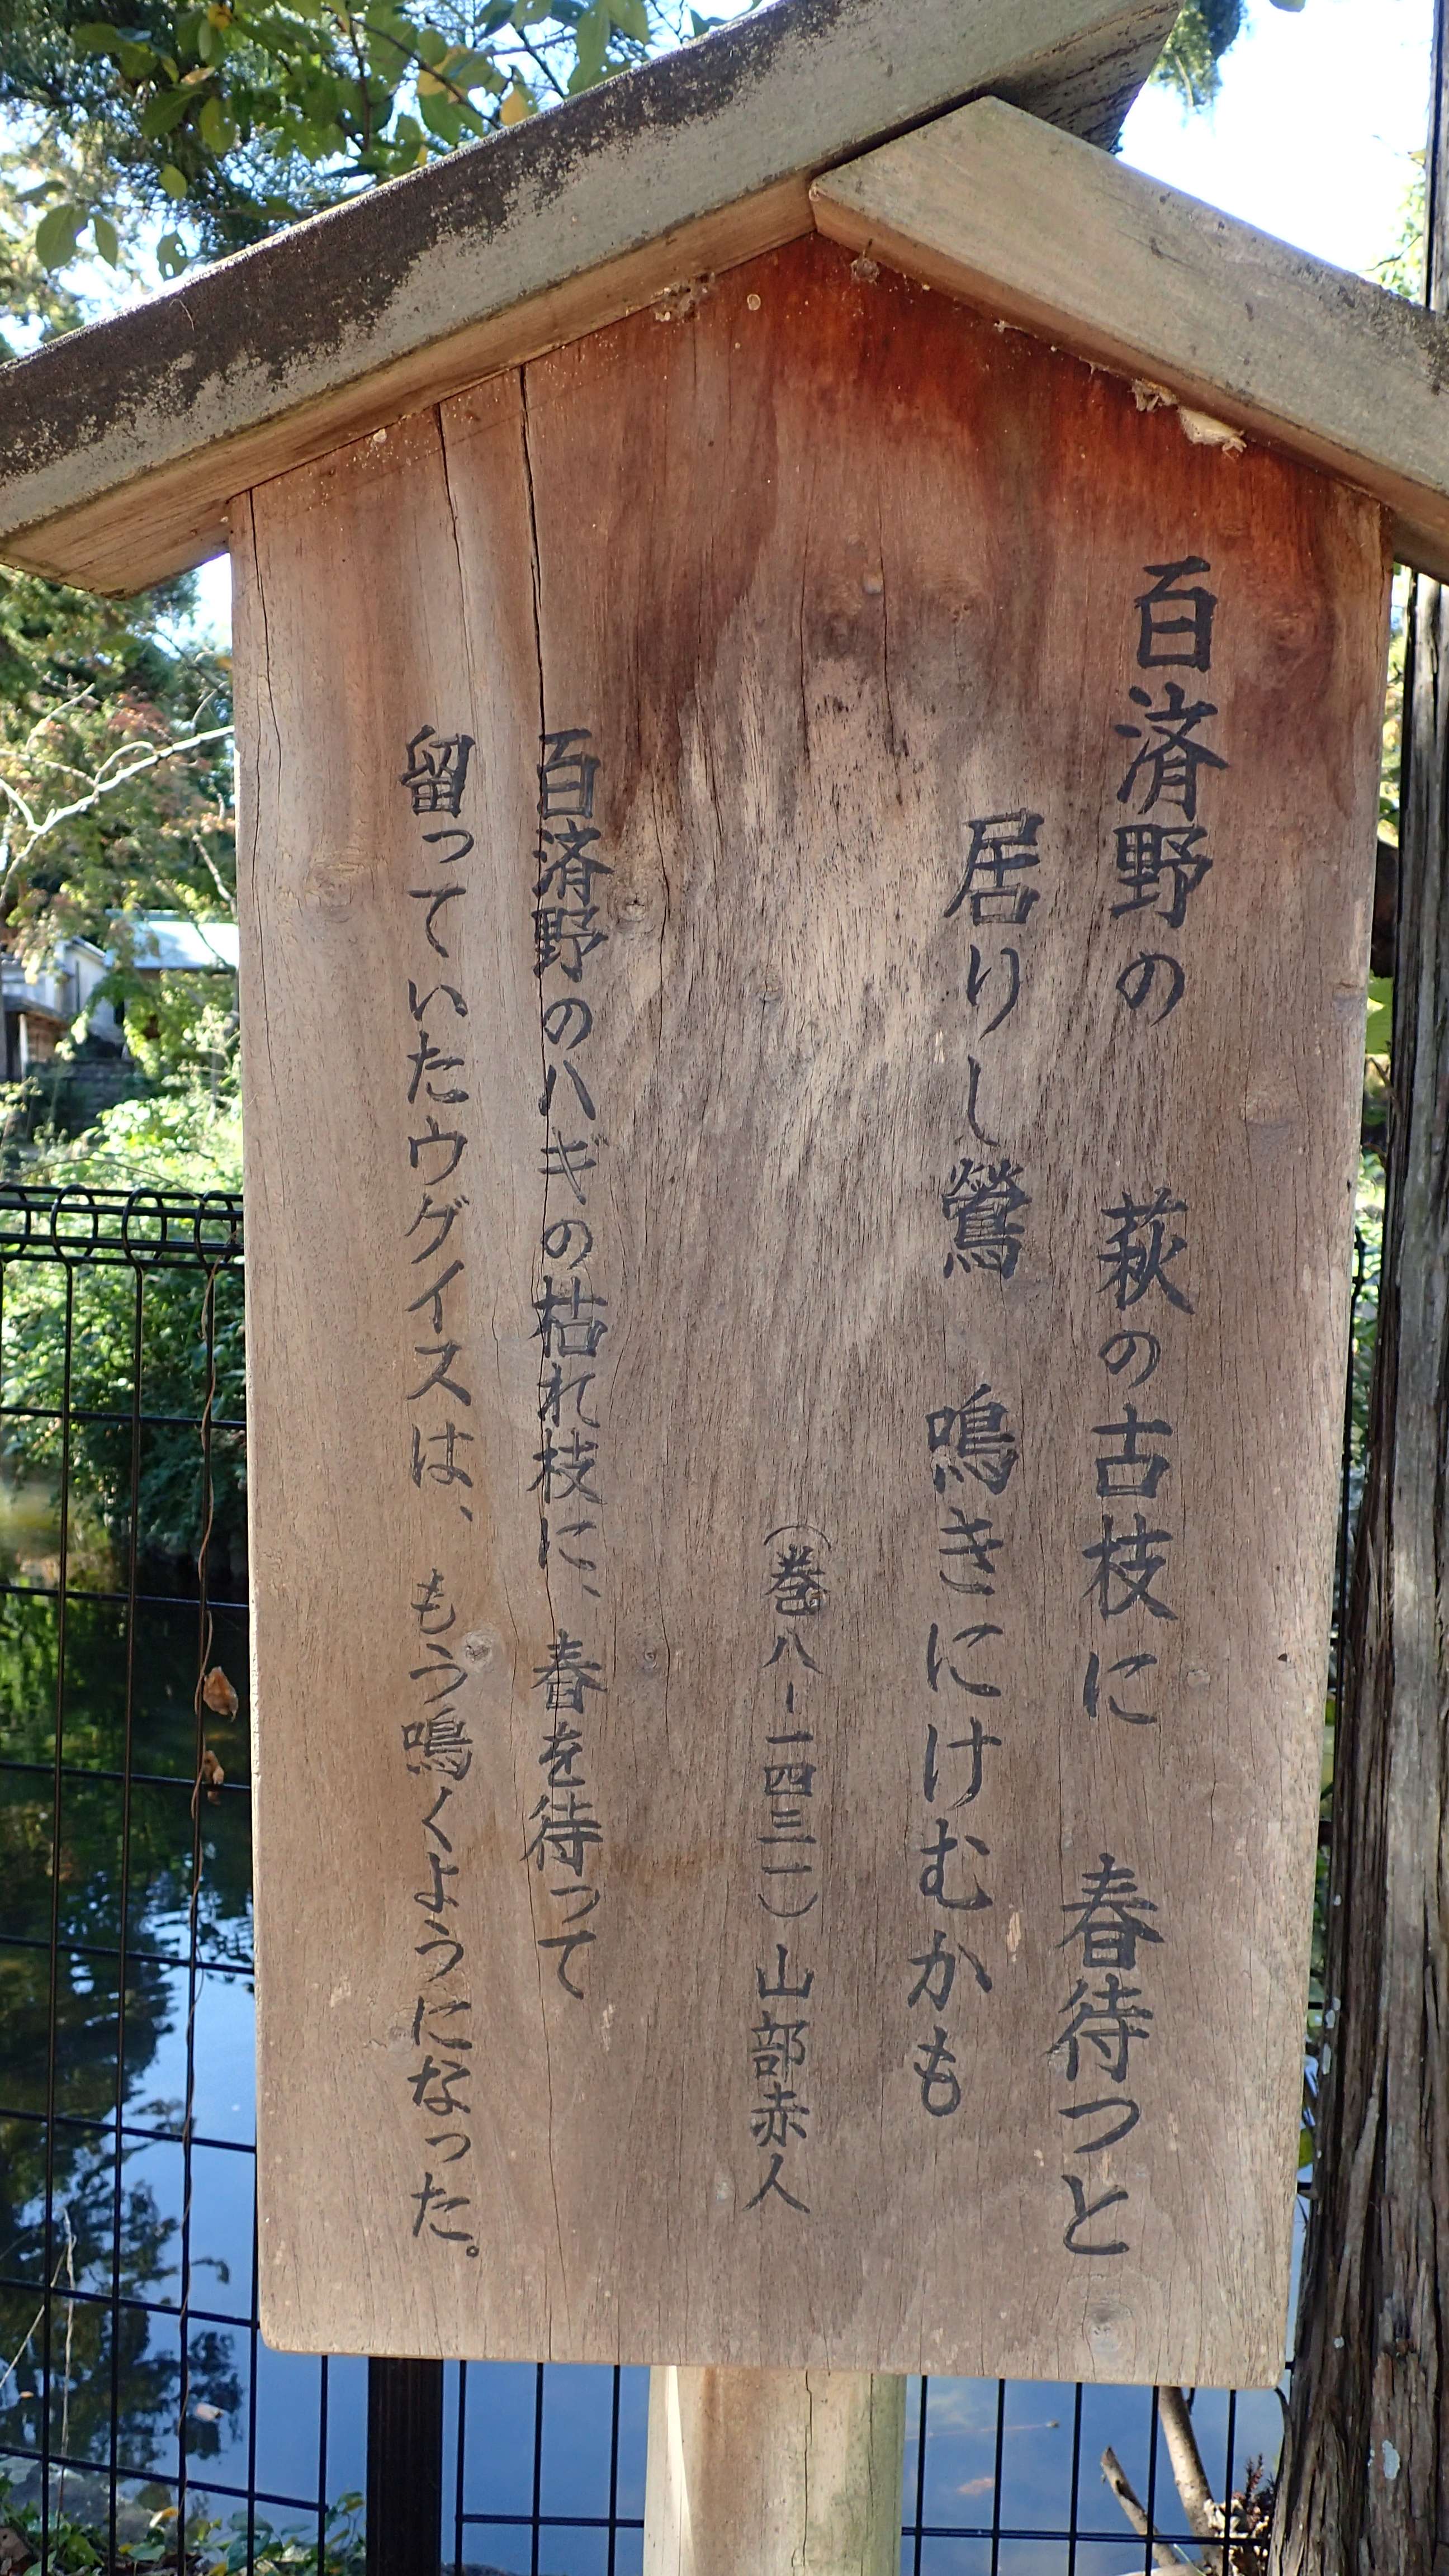 百済野の 萩の古枝に 春待つと
居りし鶯 鳴きにけむかも
(巻八-一四三一)山部赤人
百済野のハギの枯れ枝に、春を待って
留っていたウグイスは、もう鳴くようになった。